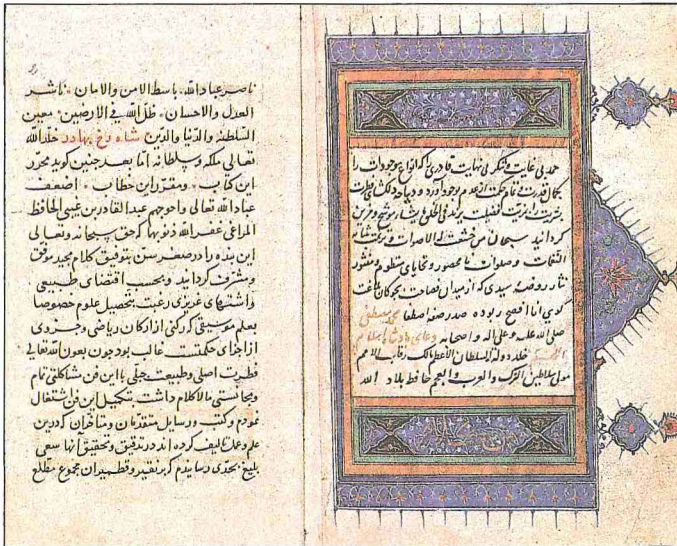 حمد بی غایت و شکر بی نهایت قادری را که انواع موجودات را
بکمال قدرت و تمام حکمت از عدم بوجود آورد و دیباچه دلکشای فطرت
بشریت
کردانید سبحان من
النغمات و صلوات نا محصور و تحایای منظوم و منثور
نثار روضه سیدی که از میدان فصاحت بچوکان بلاغت
کوی انا افصح ربوده صدر صفه اصطفا مصطفی
صلی الله علیه و علی اله و اصحابه دعای پادشاه اسلام
خلد دولته السلطان الاعظم مالک رقاب الامم
مولی سلاطین الترک والعرب والعجم حافظ بلاد الله
ناصر عباد الله باسط الامن والامان ناشر
العدل والاحسان ظل الله فی الارضین معین
السلطنه والدنیا والدین شاه رخ بهادر خلد الله
تعالی ملکه و سلطانه اما بعد چنین کوید محرر
این کتاب و مقرر این خطاب اضعف
عباد الله تعالی واحوجهم عبد القادر بن غیبی الحافظ
المراغی غفر الله ذنوبها که حق سبحانه و تعالی
این بنده را در صغر سن بتوفیق کلام مجید موفق
و مشرف کردانید و بحسب اقتضای طبیعی
و اشتهای غریزی رغبت بتحصیل علوم خصوصا
بعلم موسیقی که رکنی از ارکان ریاضی و جزوی
از اجزای حکمتست غالب بود چون بعون الله تعالی
فطرت اصلی و طبیعت جبلی با این فن مشاکلتی تمام
و مجانستی مالاکلام داشت بتکمیل این فن اشتغال
نمودم و کتب و رسایل متقدمان و متاخران که درین
علم و عمل تالیف کرده اند در تدقیق و تحقیق آنها سعی
بلیغ بحدی رسانیدم که بر نقیر و قطمیر ان مجموع مطلع